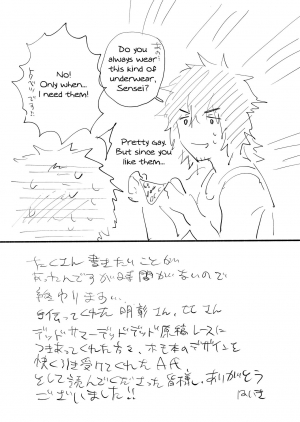 Do you
always wear
this kind of
underwear,
Sensei?
No!
Only when...
I need them!
Pretty gay.
But since you
like them...
たくさん書きたいことが
あったんですが時間がないので
終わります...
手伝ってくれた明彰さん、
デッドサマーデッドデッド原稿レースに
つきあってくれた方々、ホモ本のデザインを
快く引き受けてくれたA代
として読んでくださった皆様、ありがとう
ございました!!